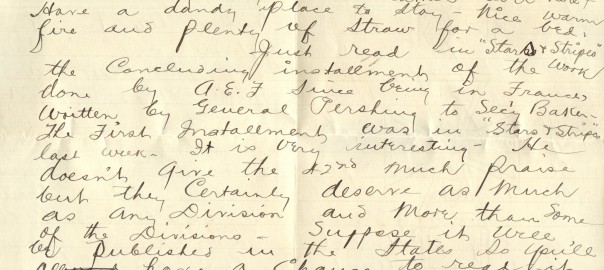 Have a dandy place to stay - nice warm
fire and plenty of straw for a bed.
Just read in "Stars & Stripes"
the Concluding installment of the Work
done by A.E.F Since being in France,
Written by General Pershing to Sec'y Baker-
The First Installment was in "Stars & Stripes"
last week - It is very interesting - He
doesn't give the 42nd Much praise
but they Certainly deserve as Much
as any Division and More than Some
of the Divisions - Suppose it will
be published in the States So you'll
have a Chance to read it